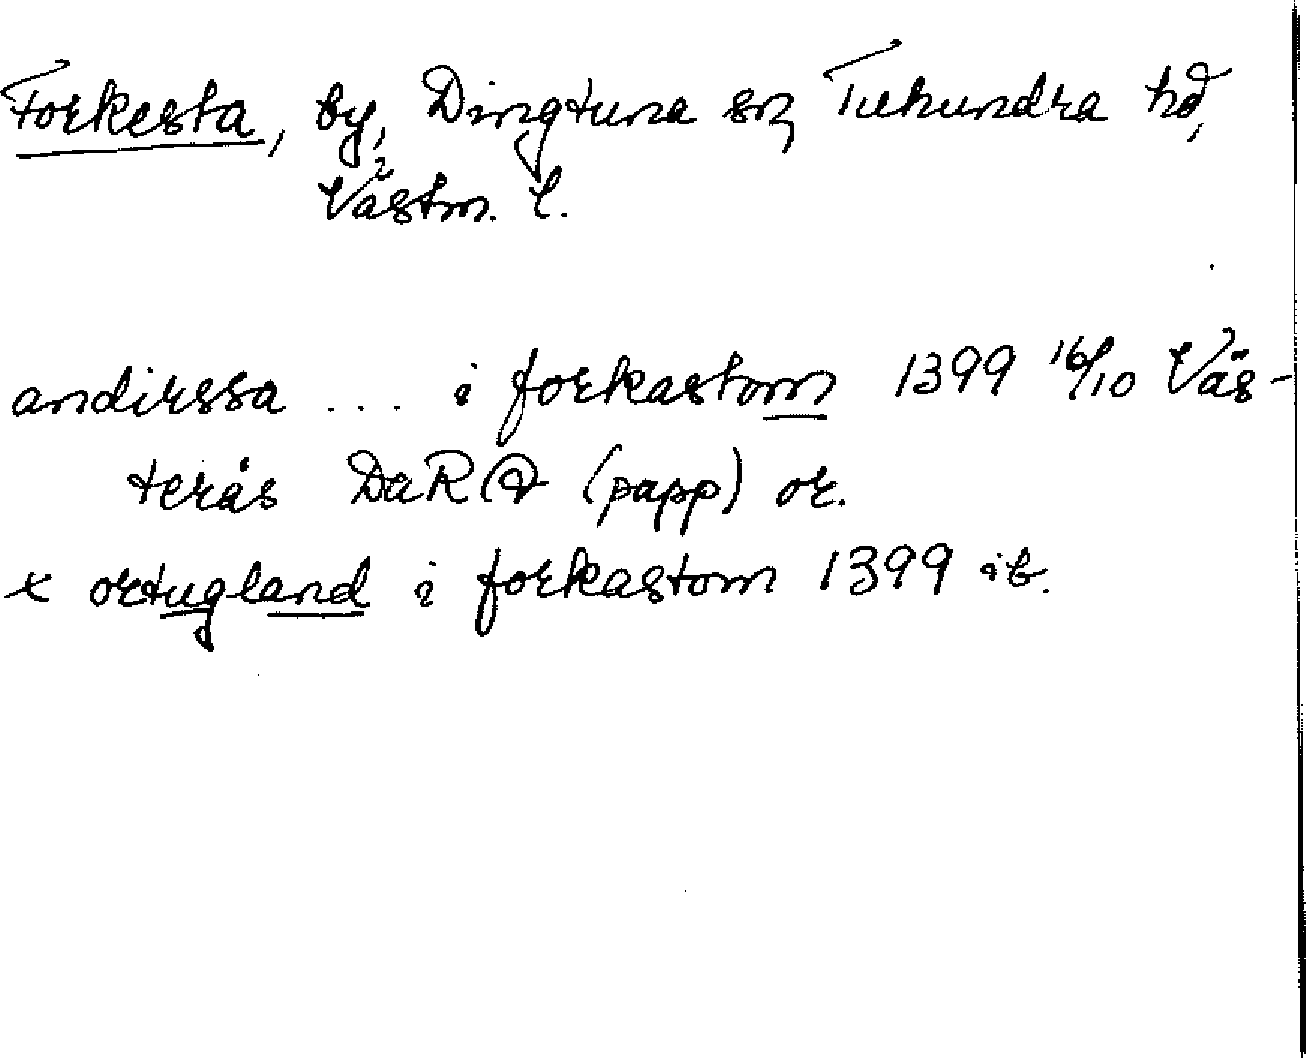 Forkesta, by, Dingtuna sn, Tuhundra hd,
Västm. l.
andirssa ... i forkastom 1399 16/10 Väs-
terås DaRA (papp) or.
x ortugland i forkastom 1399 ib.